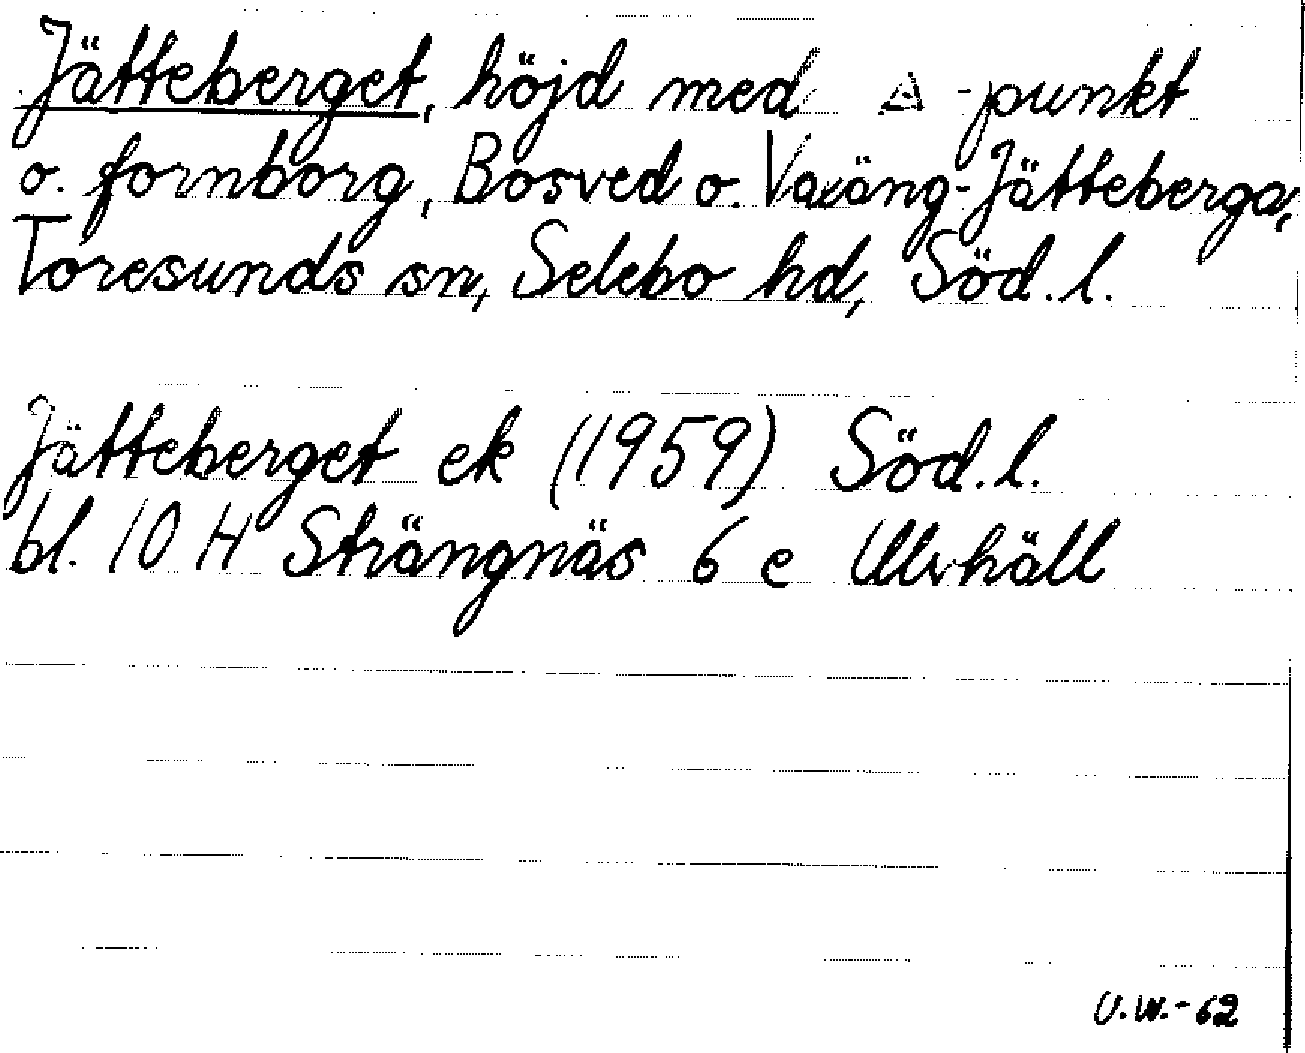 Jätteberget, höjd med △-punkt
o. fornborg, Bosved o. Vaxäng-Jätteberga,
Toresunds sn, Selebo hd, Söd.l.
Jätteberget ek (1959) Söd.l.
bl. 10 H Strängnäs 6 e Ulvhäll
U.W.-62